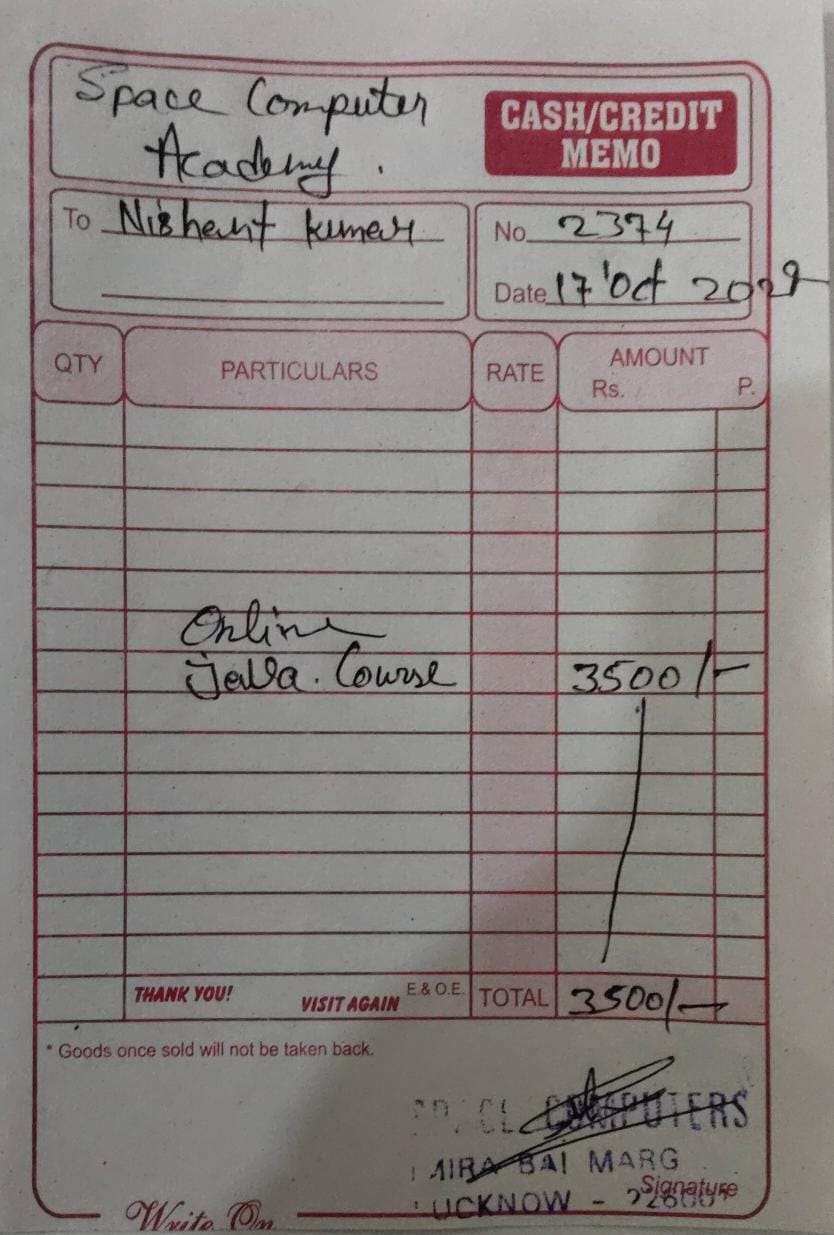 Space Computer
Academy.
CASH/CREDIT
MEMO
To Nishant Kumar
No. 2374
Date 17 Oct
QTY PARTICULARS RATE AMOUNT
Rs. P.
Online
Java. Course 3500/-
THANK YOU! VISIT AGAIN E.& O.E. TOTAL 3500/-
* Goods once sold will not be taken back.
COMPUTERS
MIRA BAI MARG
LUCKNOW -
Signature
Write On